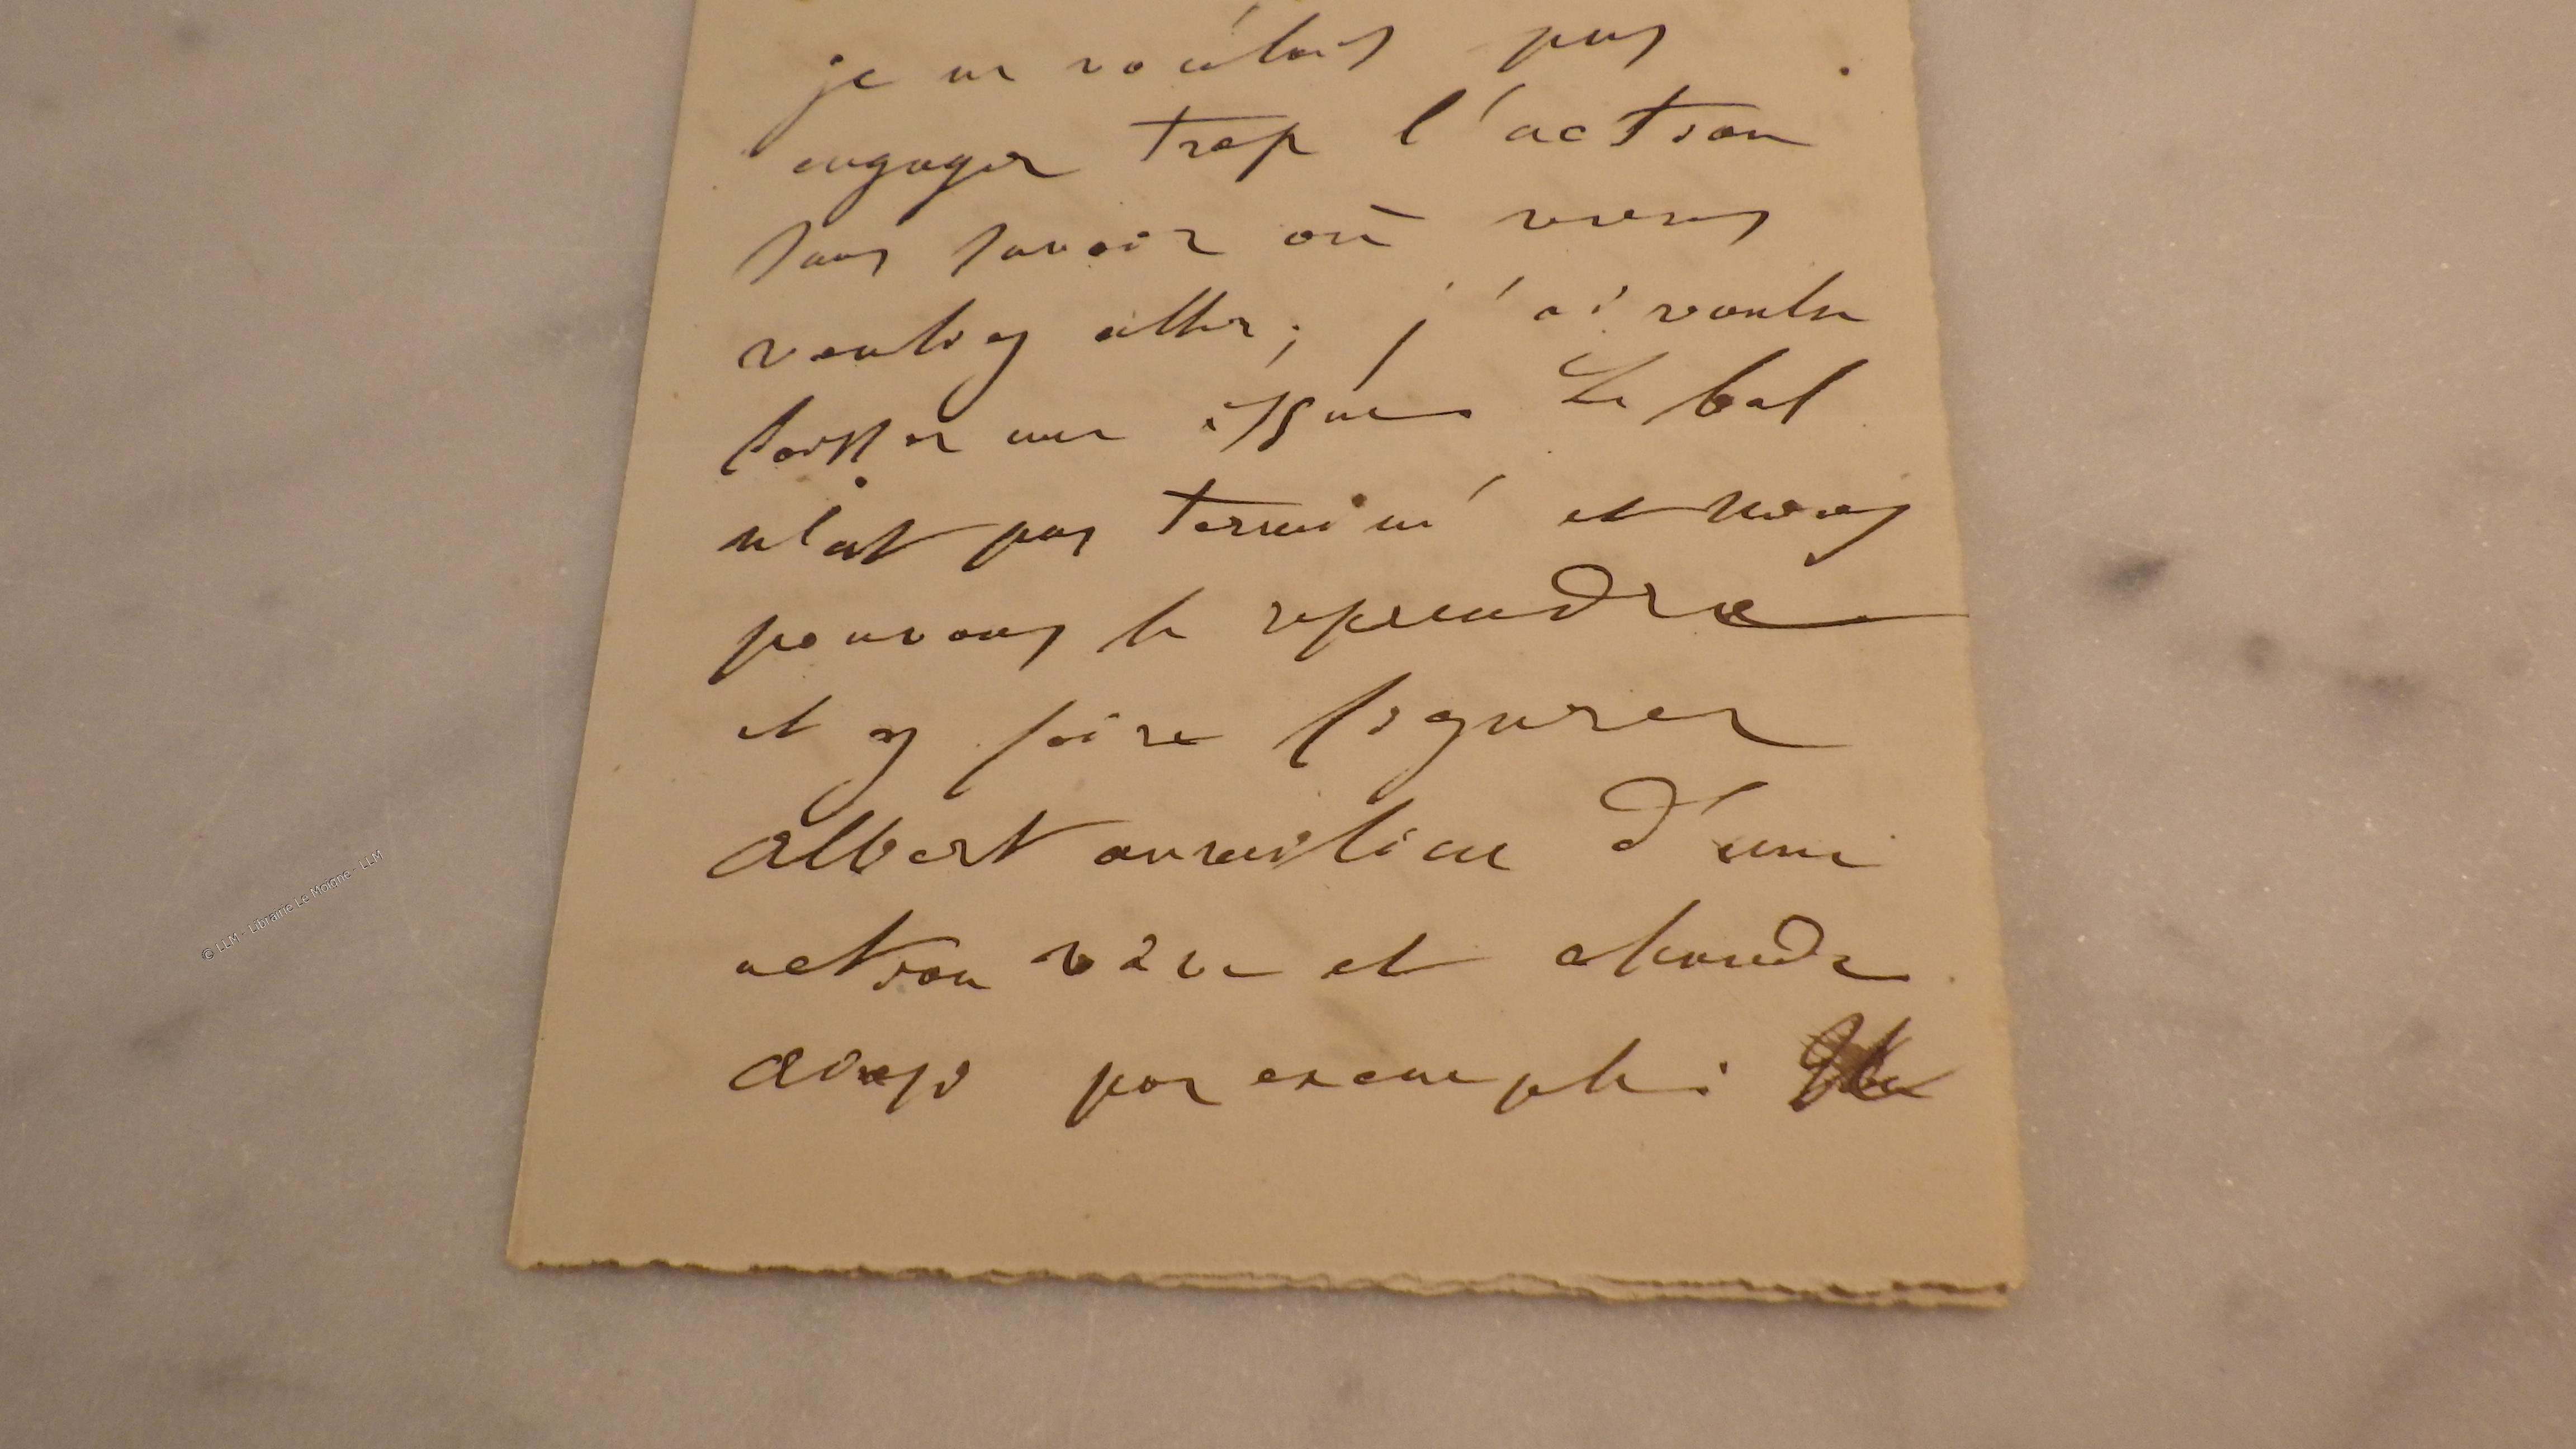 je ne voulais pas
engager trop l'action
sans savoir où vous
vouliez aller; j'ai voulu
laisser une issue. Le bal
n'est pas terminé et nous
pouvons le reprendre
et y faire figurer
Albert au milieu d'une
action vive et chaude
ainsi par exemple:
© LLM - Librairie Le Moigne - LLM